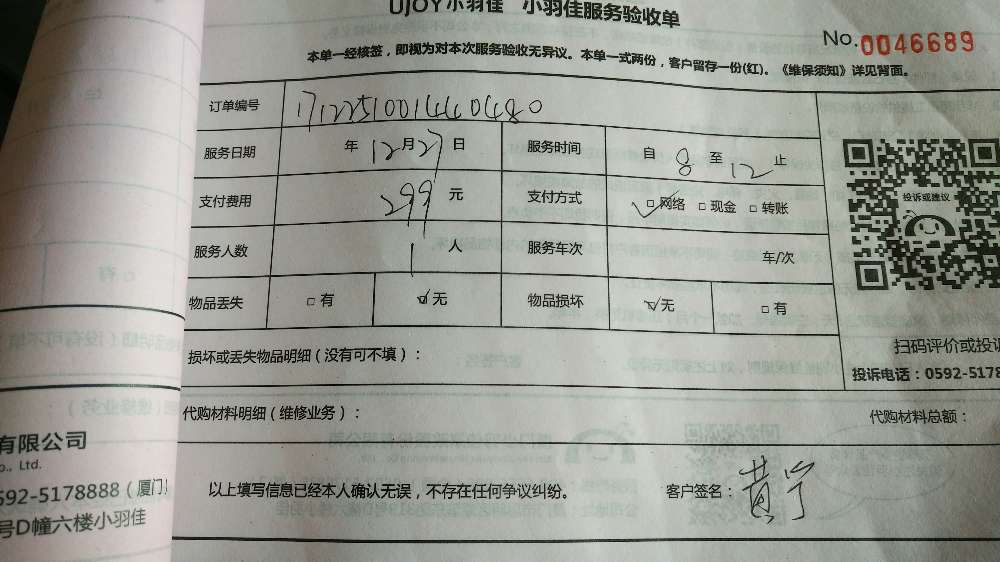 UJOY小羽佳 小羽佳服务验收单
No.0046689
本单一经核签，即视为对本次服务验收无异议。本单一式两份，客户留存一份(红)。《维保须知》详见背面。
订单编号 171225100144040480
服务日期 年 12月27日 服务时间 自 8 至 12 止
支付费用 299 元 支付方式 □网络 □现金 □转账
投诉或建议
服务人数 1 人 服务车次 车/次
物品丢失 □有 □无 物品损坏 □无 □有
损坏或丢失物品明细（没有可不填）：
扫码评价或投诉
投诉电话：0592-5178
代购材料明细（维修业务）： 代购材料总额：
以上填写信息已经本人确认无误，不存在任何争议纠纷。 客户签名：黄宁
有限公司
o., Ltd.
592-5178888（厦门）
号D幢六楼小羽佳